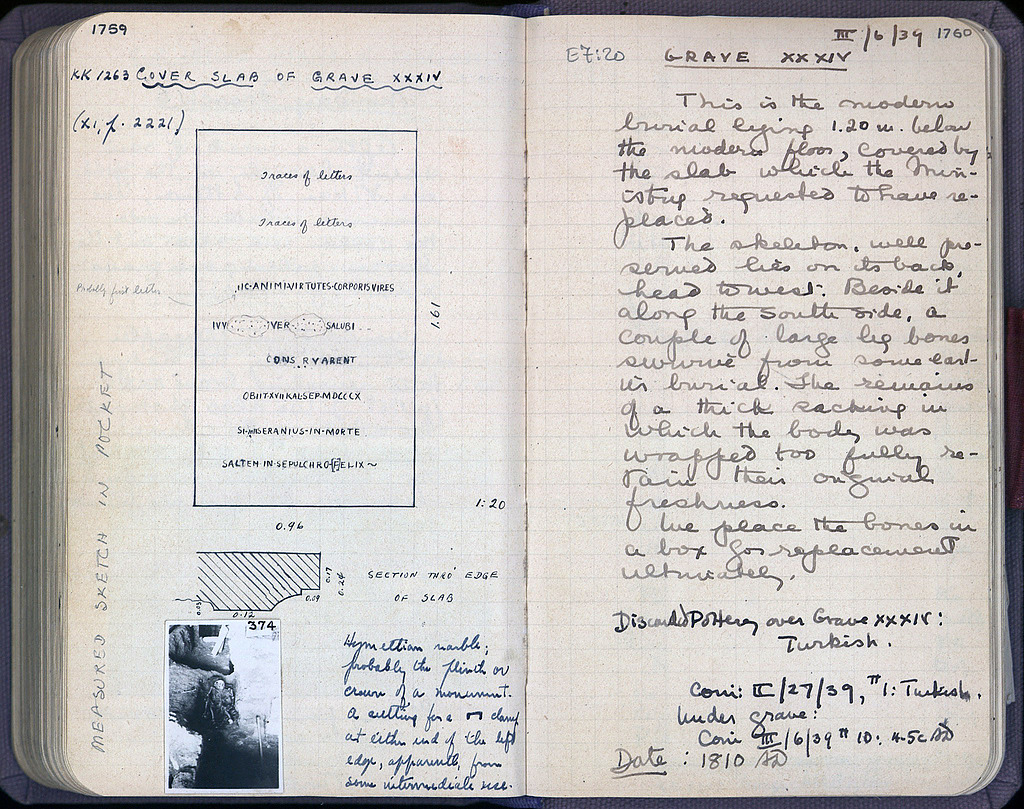 1759
KK 1263 COVER SLAB OF GRAVE XXXIV
(XI, p. 2221)
Traces of letters
Traces of letters
Probably first letter
IC·ANIMI·VIRTUTES·CORPORIS VIRES
IVV VER SALUBI
CONS RVARENT
OBIIT·XVII KAL·SEP·MDCCCX
SERANIUS·IN·MORTE
SALTEM·IN·SEPULCHRO·FELIX ~
1.61
1:20
0.96
MEASURED SKETCH IN POCKET
0.17
0.24
0.09
0.03
0.12
SECTION THRO' EDGE
OF SLAB
374
Hymettian marble;
probably the plinth or
crown of a monument.
A cutting for a ⊓ clamp
at either end of the left
edge, apparently from
some intermediate use.
III/6/39 1760
E7:20
GRAVE XXXIV
This is the modern
burial lying 1.20 m. below
the modern floor, covered by
the slab which the Min-
istry requested to have re-
placed.
The skeleton, well pre-
served lies on its back,
head to west. Beside it
along the south side, a
couple of large leg bones
survive from some earl-
ier burial. The remains
of a thick sacking in
which the body was
wrapped too fully re-
tain their original
freshness.
We place the bones in
a box for replacement
ultimately.
Discarded Pottery over Grave XXXIV:
Turkish.
Coin: II/27/39, #1: Turkish.
Under grave:
Coin III/6/39 # 10: 4-5c AD
Date : 1810 AD